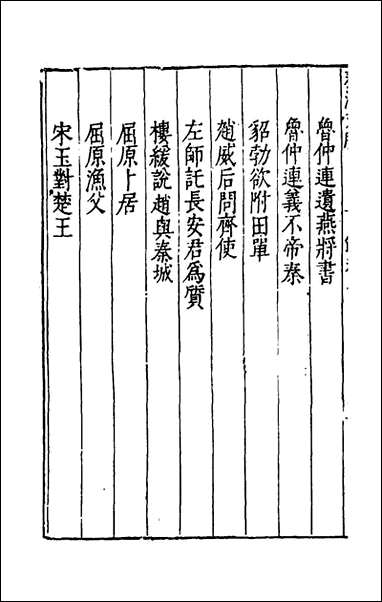 魯仲連遺燕將書
魯仲連義不帝秦
貂勃欲附田單
趙威后問齊使
左師託長安君爲質
樓緩說趙與秦城
屈原卜居
屈原漁父
宋玉對楚王